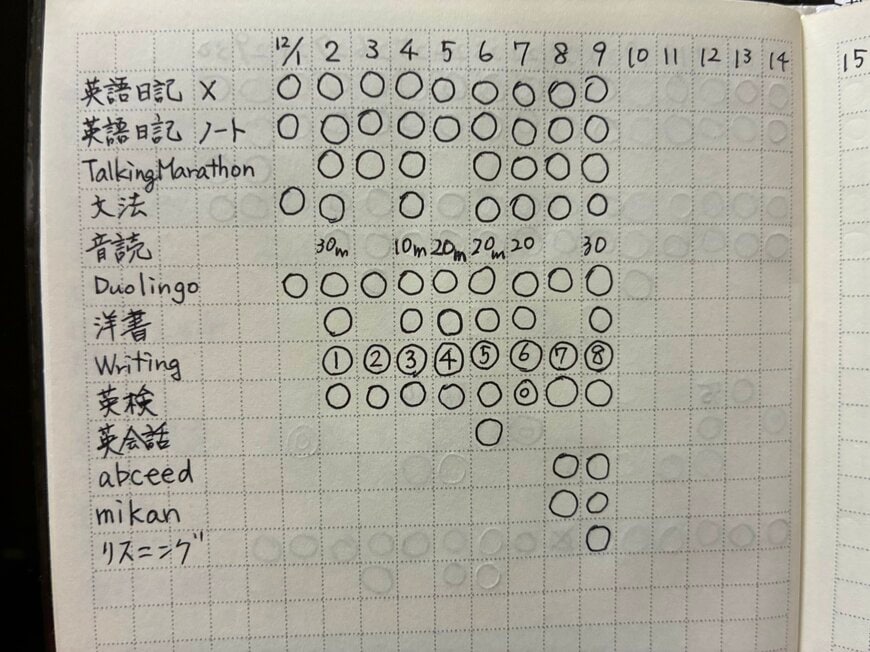 12/1 2 3 4 5 6 7 8 9 10 11 12 13 14 15
英語日記 X ○ ○ ○ ○ ○ ○ ○ ○ ○
英語日記 ノート ○ ○ ○ ○ ○ ○ ○ ○ ○
TalkingMarathon ○ ○ ○ ○ ○ ○ ○
文法 ○ ○ ○ ○ ○ ○ ○
音読 30m 10m 20m 20m 20 30
Duolingo ○ ○ ○ ○ ○ ○ ○ ○ ○
洋書 ○ ○ ○ ○ ○ ○
Writing ① ② ③ ④ ⑤ ⑥ ⑦ ⑧
英検 ○ ○ ○ ○ ○ ◎ ○ ○
英会話 ○
abceed ○ ○
mikan ○ ○
リスニング ○